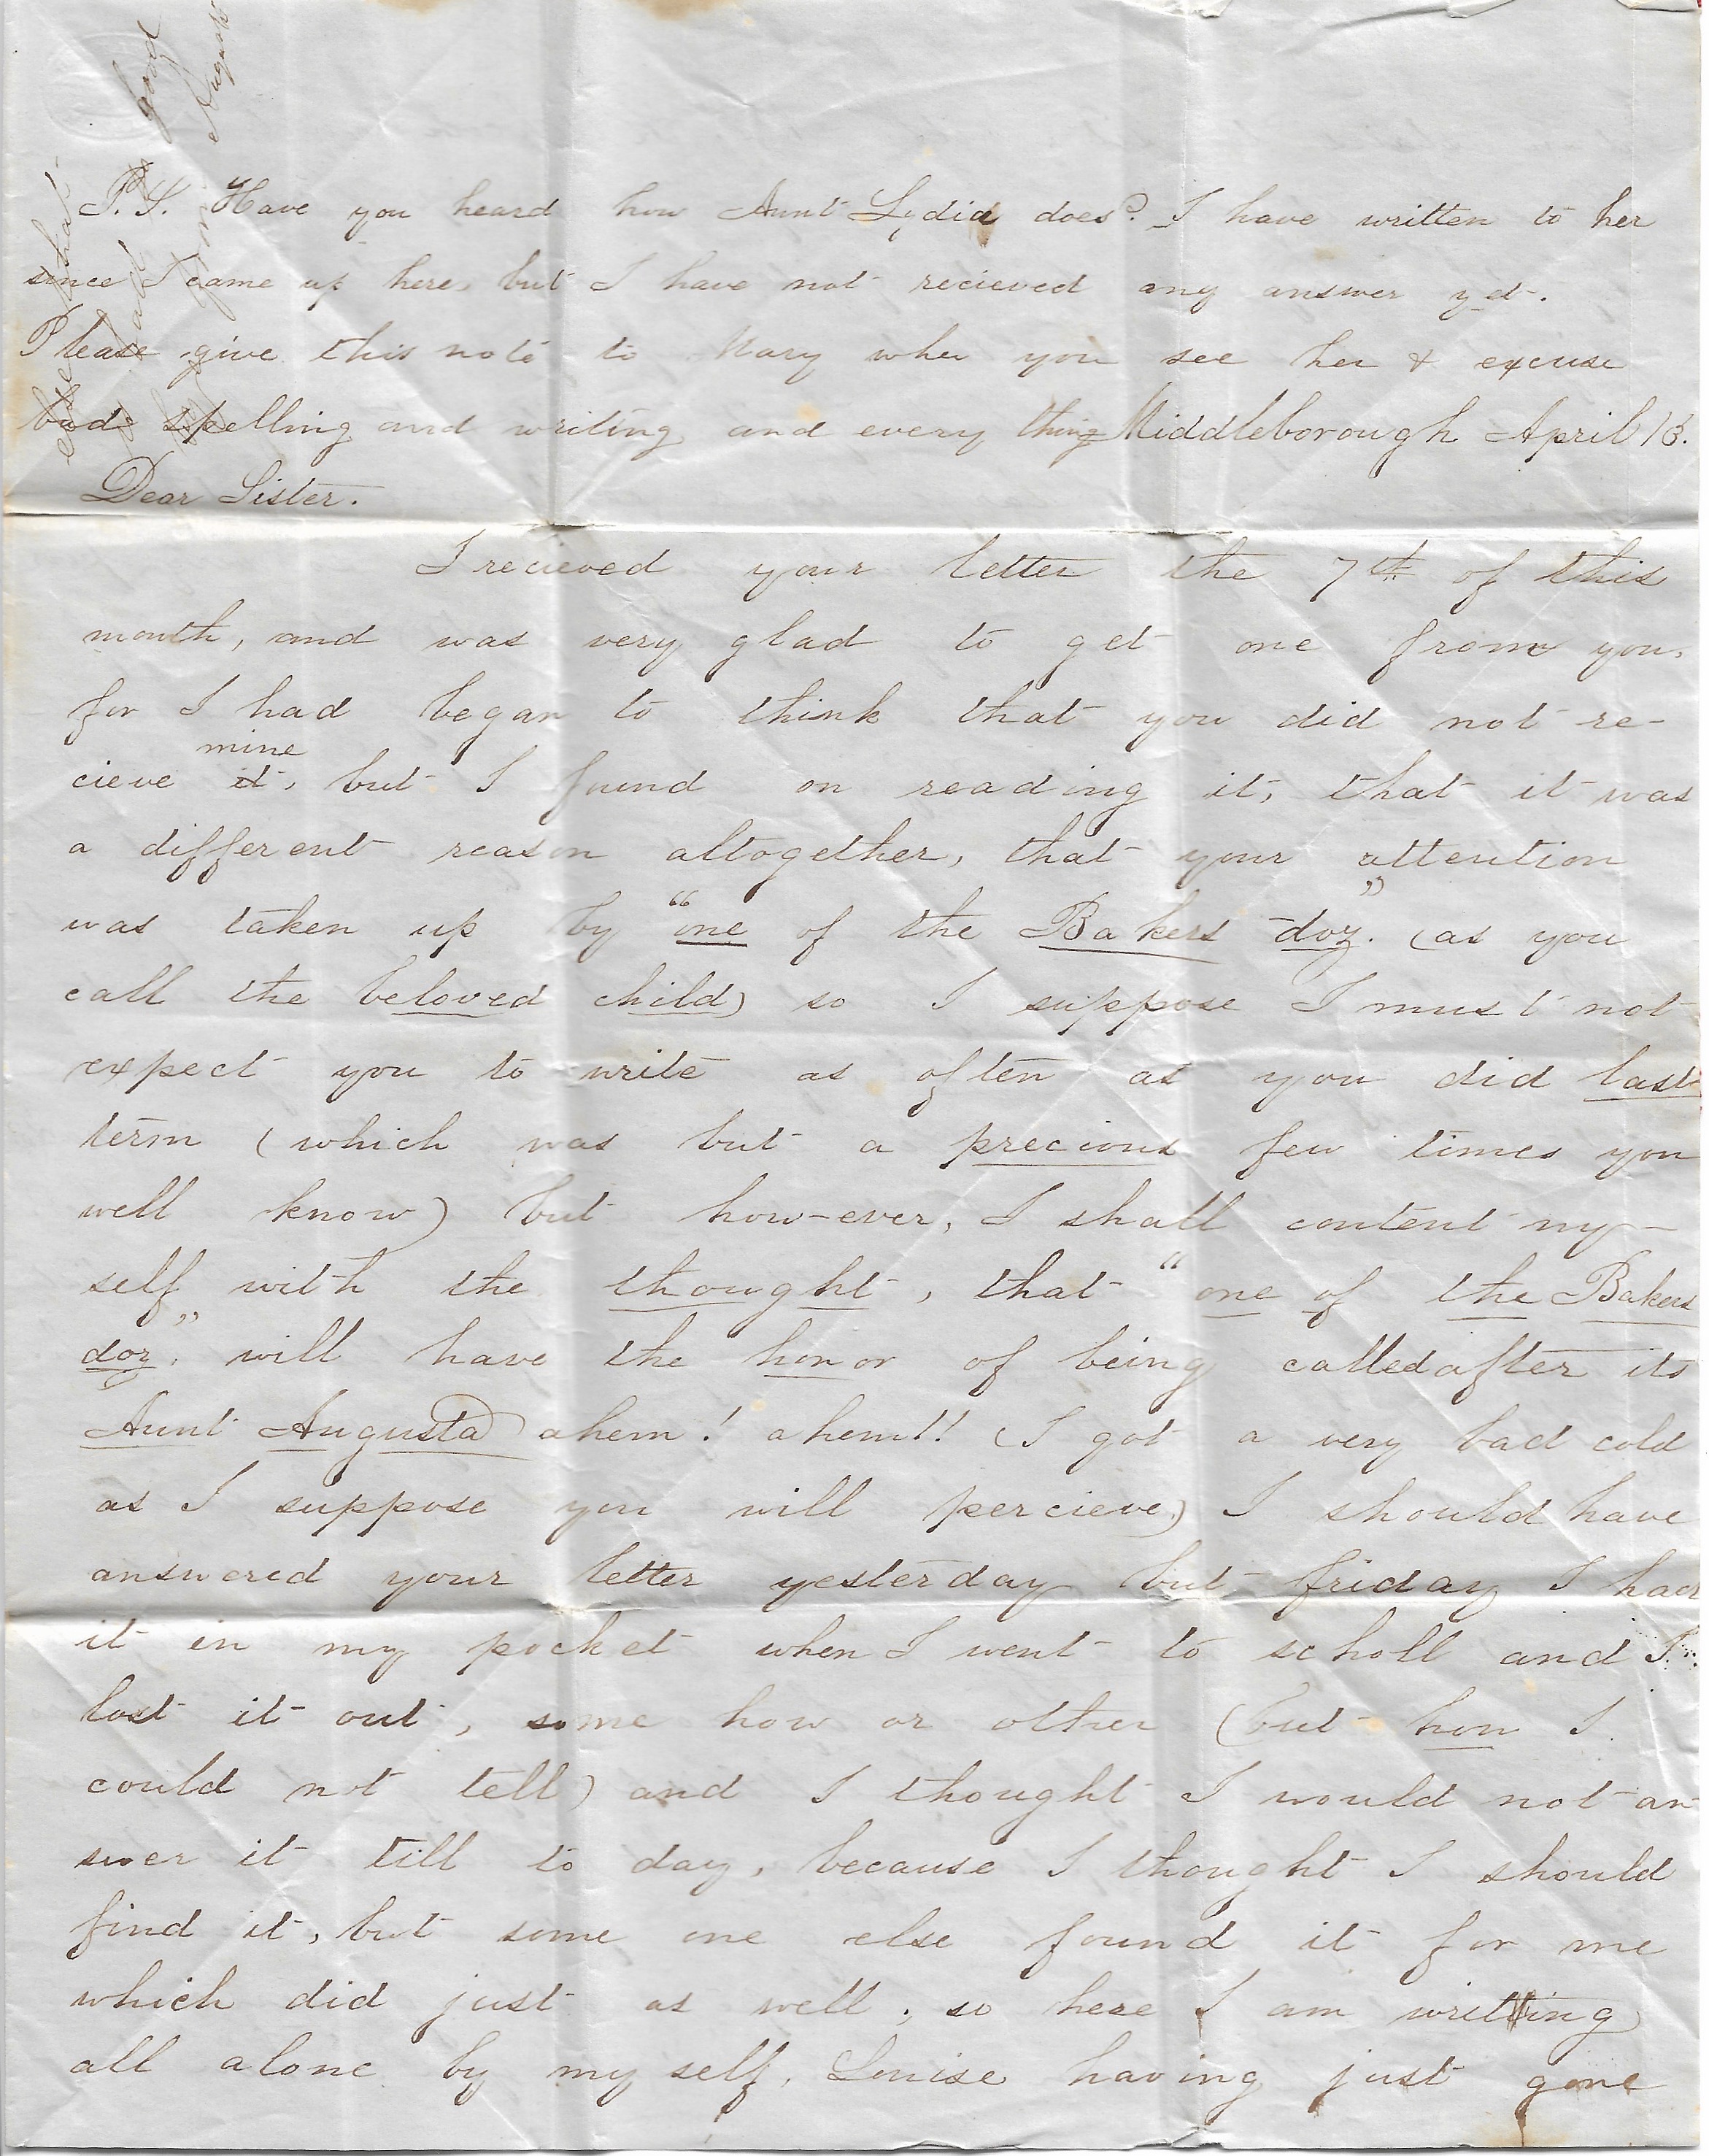 P.S. Have you heard how Aunt Lydia does? I have written to her
since I came up here, but I have not recieved any answer yet.
Please give this note to Mary when you see her & excuse
bad spelling and writing and every thing
Middleborough April 13.
Dear Sister.
I recieved your letter the 7th of this
month, and was very glad to get one from you,
for I had began to think that you did not re-
cieve it mine, but I found on reading it, that it was
a different reason altogether, that your attention
was taken up by "one of the Bakers doz." (as you
call the beloved child) so I suppose I must not
expect you to write as often as you did last
term (which was but a precious few times you
well know) but how-ever, I shall content my-
self with the thought, that "one of the Bakers
doz." will have the honor of being called after its
Aunt Augusta ahem! ahem!! (I got a very bad cold
as I suppose you will percieve) I should have
answered your letter yesterday but friday I had
it in my pocket when I went to scholl and I
lost it out, some how or other (but how I
could not tell) and I thought I would not an
swer it till to day, because I thought I should
find it, but some one else found it for me
which did just as well; so here I am writting
all alone by my self, Louise having just gone
good
August